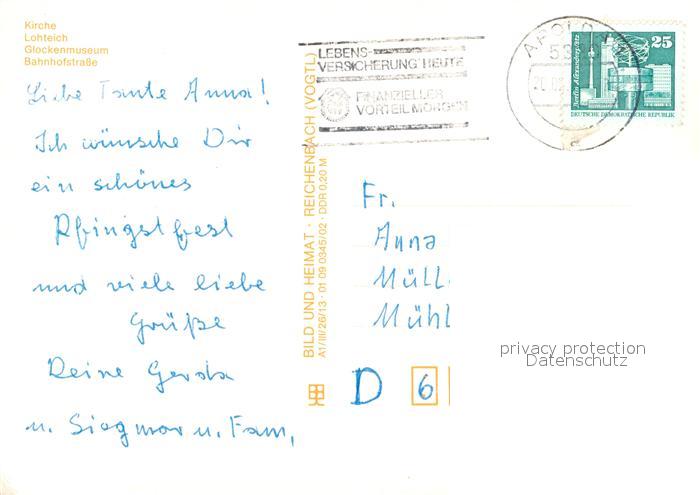 Kirche
Lohteich
Glockenmuseum
Bahnhofstraße
Liebe Tante Anna!
Ich wünsche Dir
ein schönes
Pfingstfest
und viele liebe
Grüße
Deine Gerda
u. Siegmar u. Fam,
BILD UND HEIMAT · REICHENBACH (VOGTL)
A1/III/26/13 · 01 09 0345/02 · DDR 0,20 M
LEBENS-
VERSICHERUNG HEUTE
FINANZIELLER
VORTEIL MORGEN
APOLDA
25
Berlin, Alexanderplatz
DEUTSCHE DEMOKRATISCHE REPUBLIK
Fr.
Anna
Müll
Mühl
privacy protection
Datenschutz
D 6